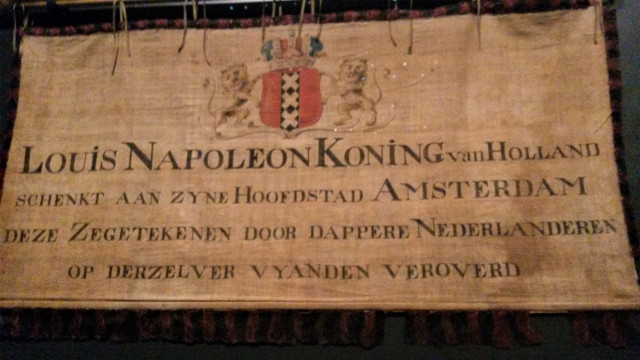 Louis Napoleon Koning van Holland
schenkt aan zyne Hoofdstad Amsterdam
deze Zegetekenen door dappere Nederlanderen
op derzelver vyanden veroverd